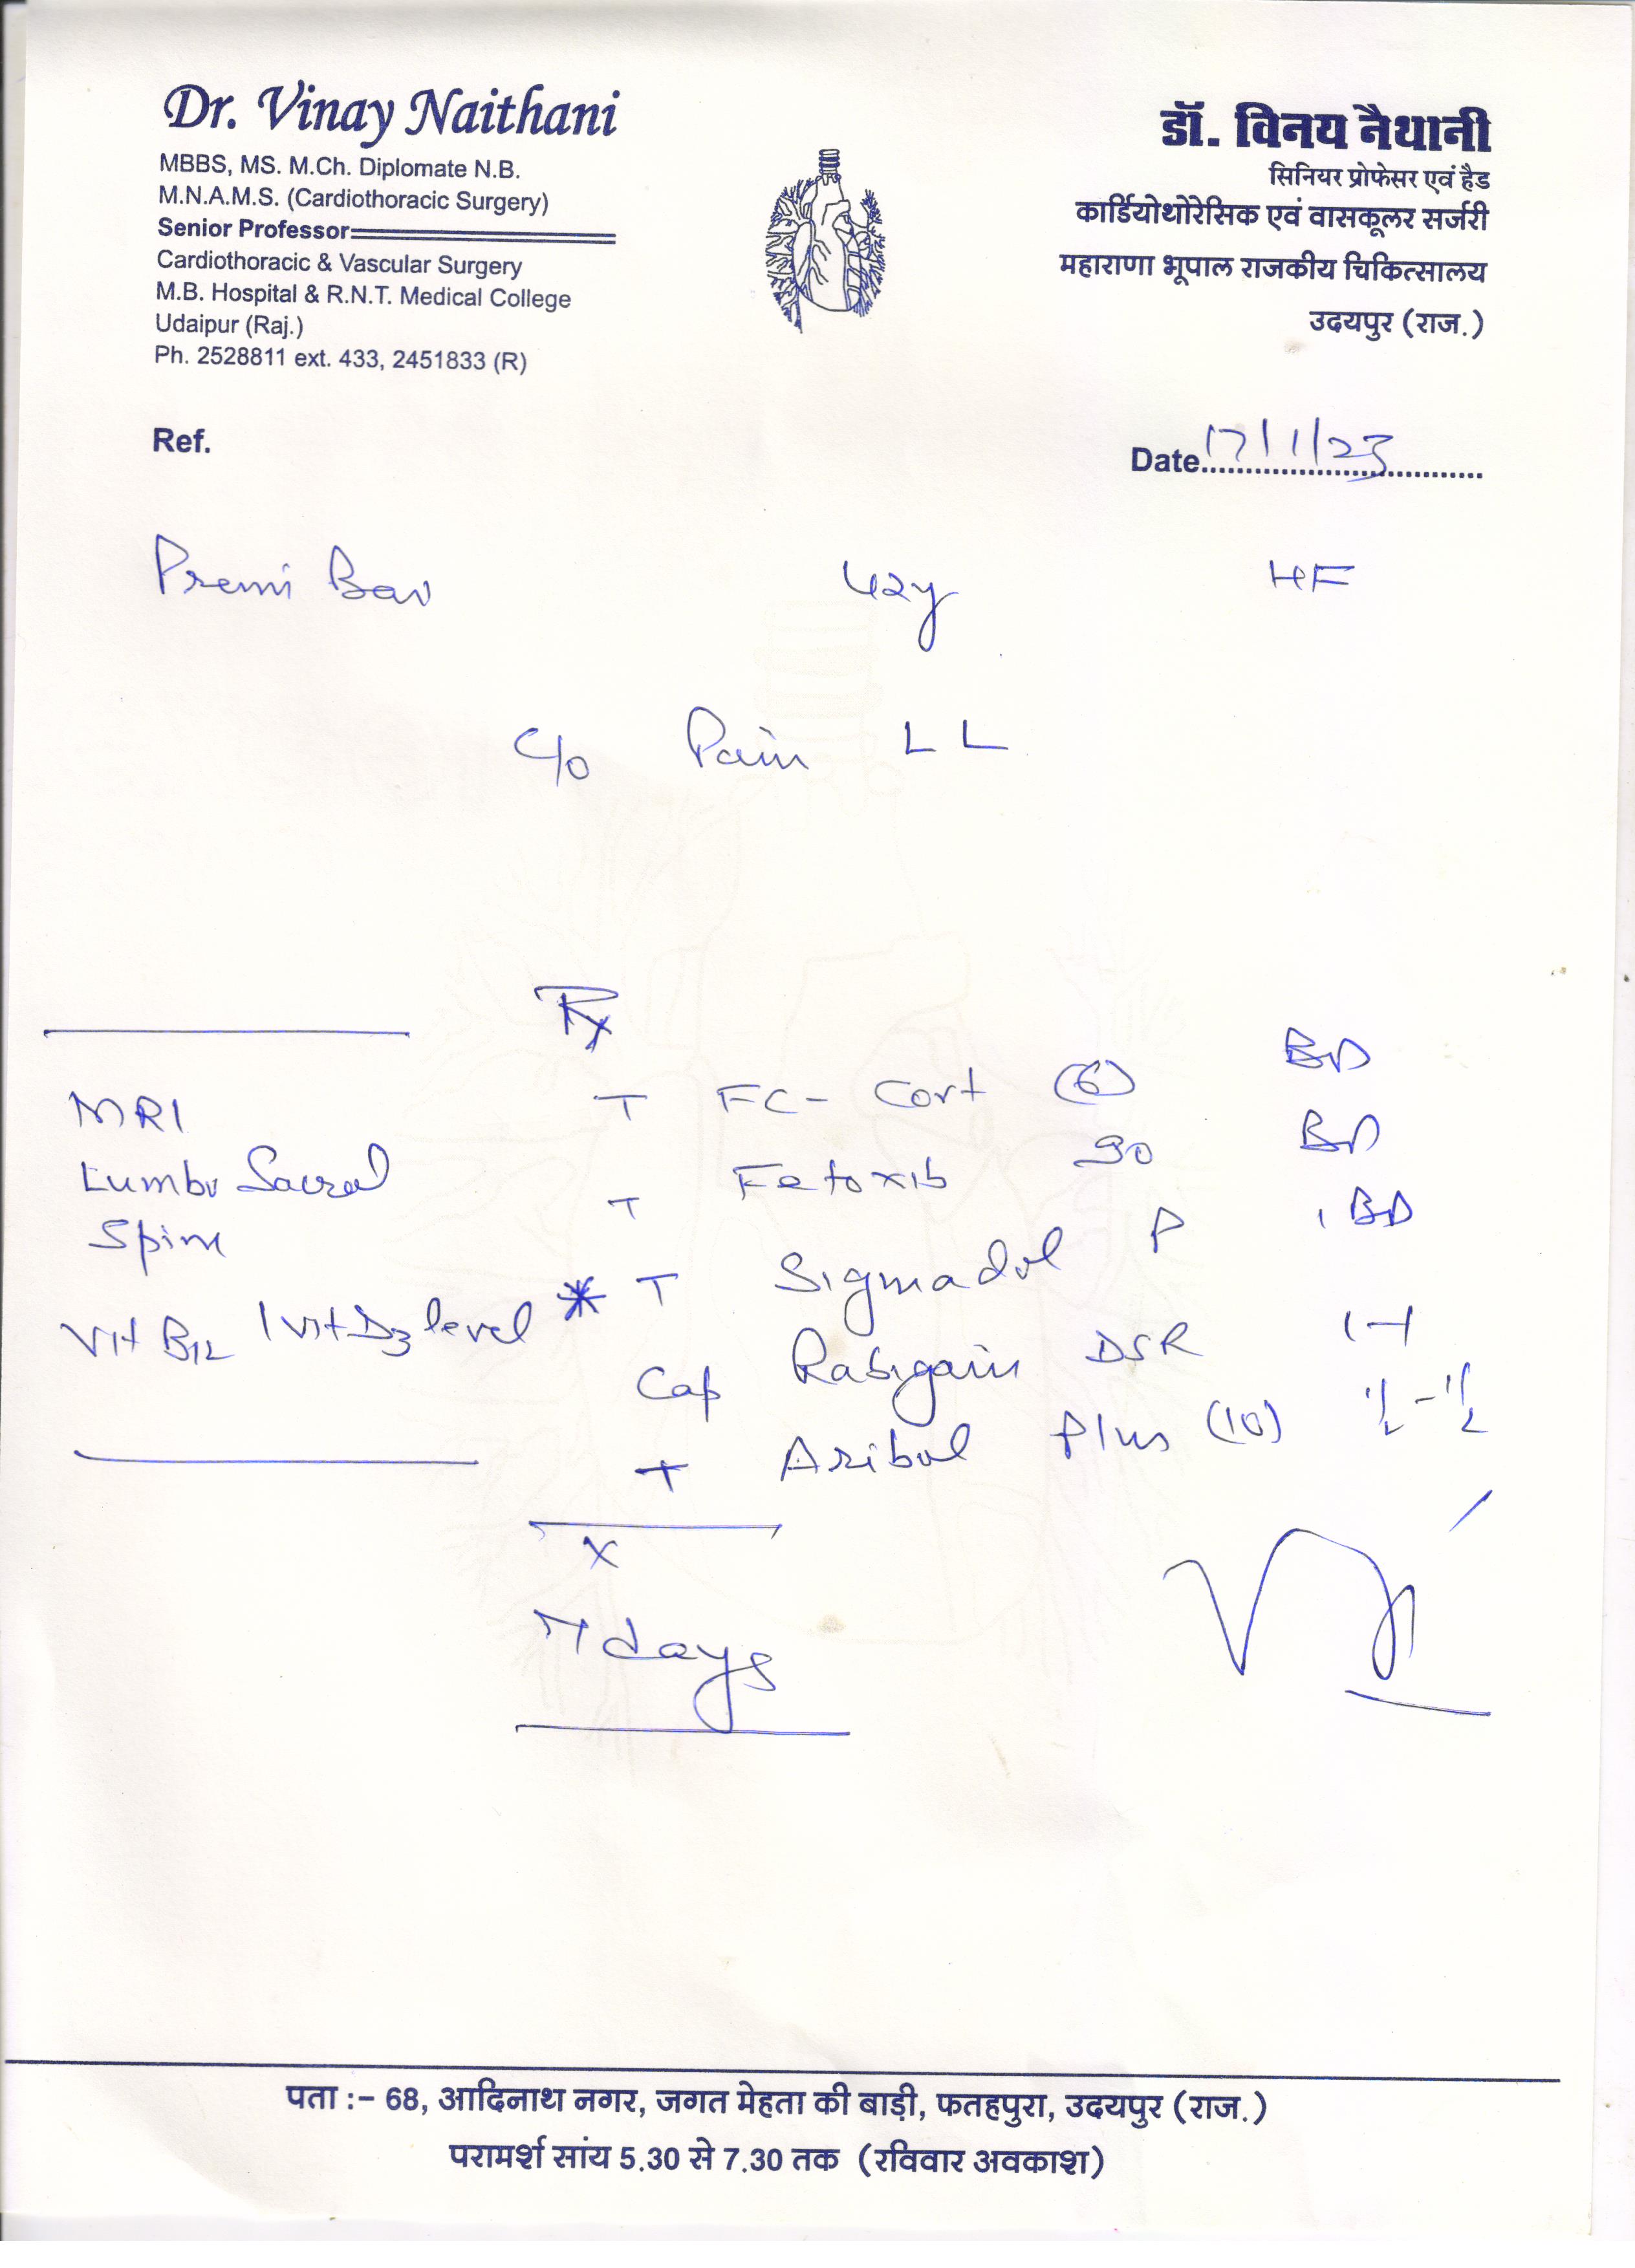 Dr. Vinay Naithani
MBBS, MS. M.Ch. Diplomate N.B.
M.N.A.M.S. (Cardiothoracic Surgery)
Senior Professor
Cardiothoracic & Vascular Surgery
M.B. Hospital & R.N.T. Medical College
Udaipur (Raj.)
Ph. 2528811 ext. 433, 2451833 (R)
डॉ. विनय नैथानी
सिनियर प्रोफेसर एवं हैड
कार्डियोथोरेसिक एवं वासकूलर सर्जरी
महाराणा भूपाल राजकीय चिकित्सालय
उदयपुर (राज.)
Ref.
Date 17/1/23
Premi 42y HF
C/o Pain LL
MRI
Lumbo Sacral
Spine
Vit B12 / Vit D3 level
Rx
T FC- Cort (6) BD
T Fetoxib 90 BD
* T Sigmadol P 1 BD
Cap Rabigain DSR 1-1
T Aribol Plus (10) 1/2 - 1/2
x
7 days
पता :- 68, आदिनाथ नगर, जगत मेहता की बाड़ी, फतहपुरा, उदयपुर (राज.)
परामर्श सांय 5.30 से 7.30 तक (रविवार अवकाश)